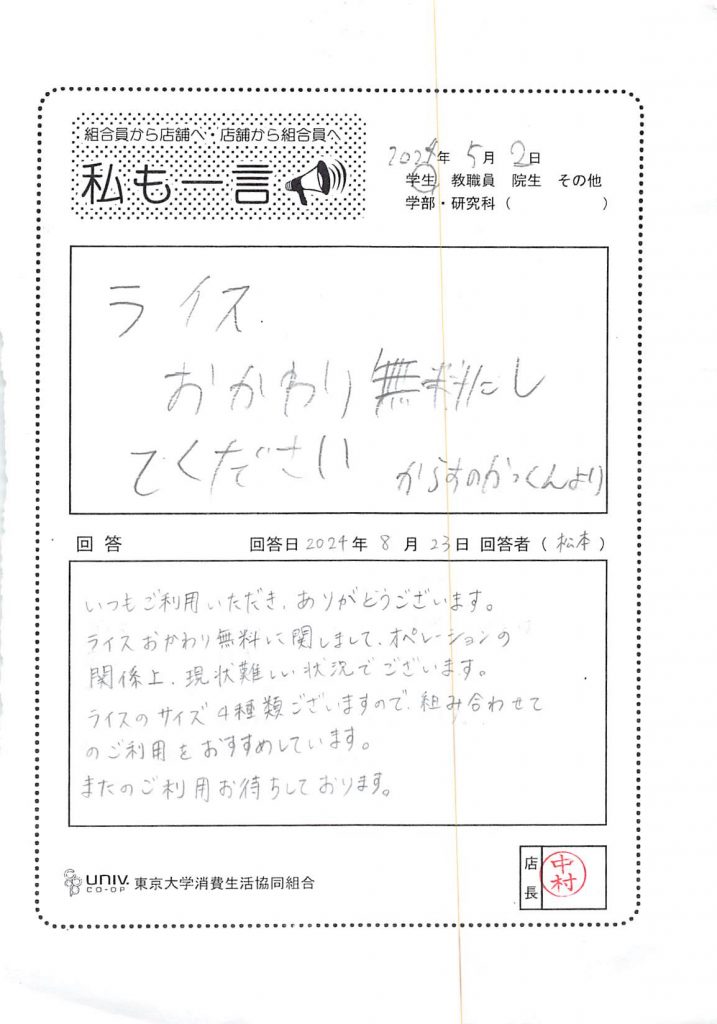 組合員から店舗へ・店舗から組合員へ
私も一言
2024年 5月 2日
学生 教職員 院生 その他
学部・研究科( )
ライス
おかわり無料にし
てください
からすのかっくんより
回答 回答日 2024年 8月 23日 回答者(松本)
いつもご利用いただき、ありがとうございます。
ライスおかわり無料に関しまして、オペレーションの
関係上、現状難しい状況でございます。
ライスのサイズ4種類ございますので、組み合わせて
のご利用をおすすめしています。
またのご利用お待ちしております。
UNIV. CO-OP 東京大学消費生活協同組合
店長 中村